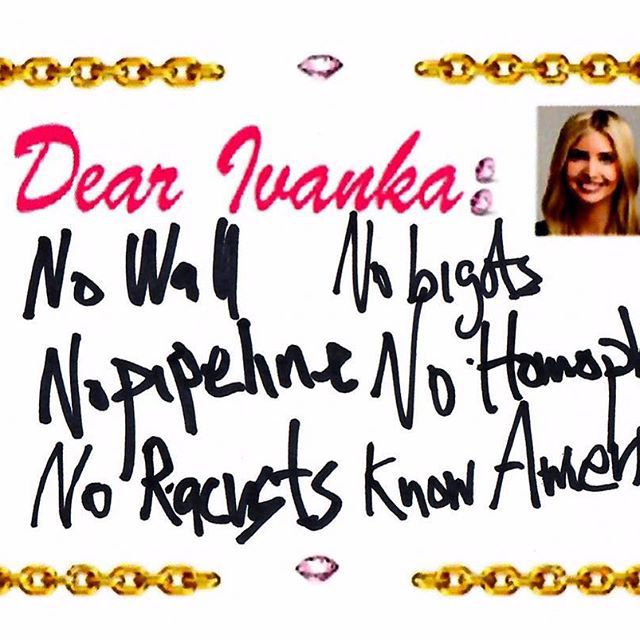 Dear Ivanka:
No Wall No bigots
No pipeline No Homoph
No Racists Know Amer